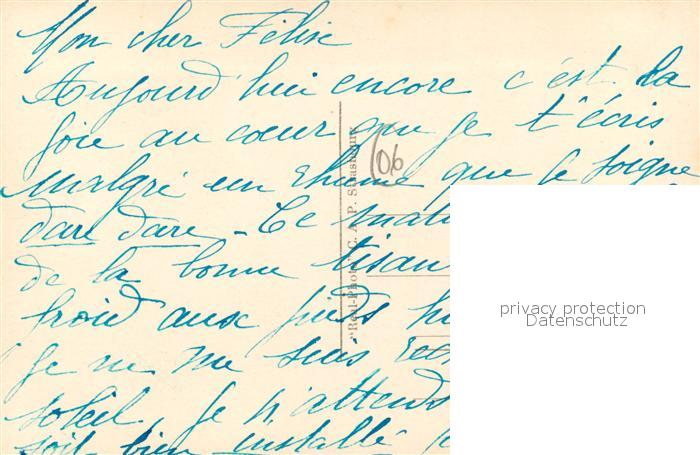 Mon cher Félix
Aujourd'hui encore c'est la
joie au cœur que je t'écris
malgré un rhume que je soigne
dare dare - Ce mati
de la bonne tisan
froid aux pieds h
je ne me suis
soleil, je n'attends
soit bien installé
"Réal-Photo" C. A. P. Strasbourg
(06
privacy protection
Datenschutz